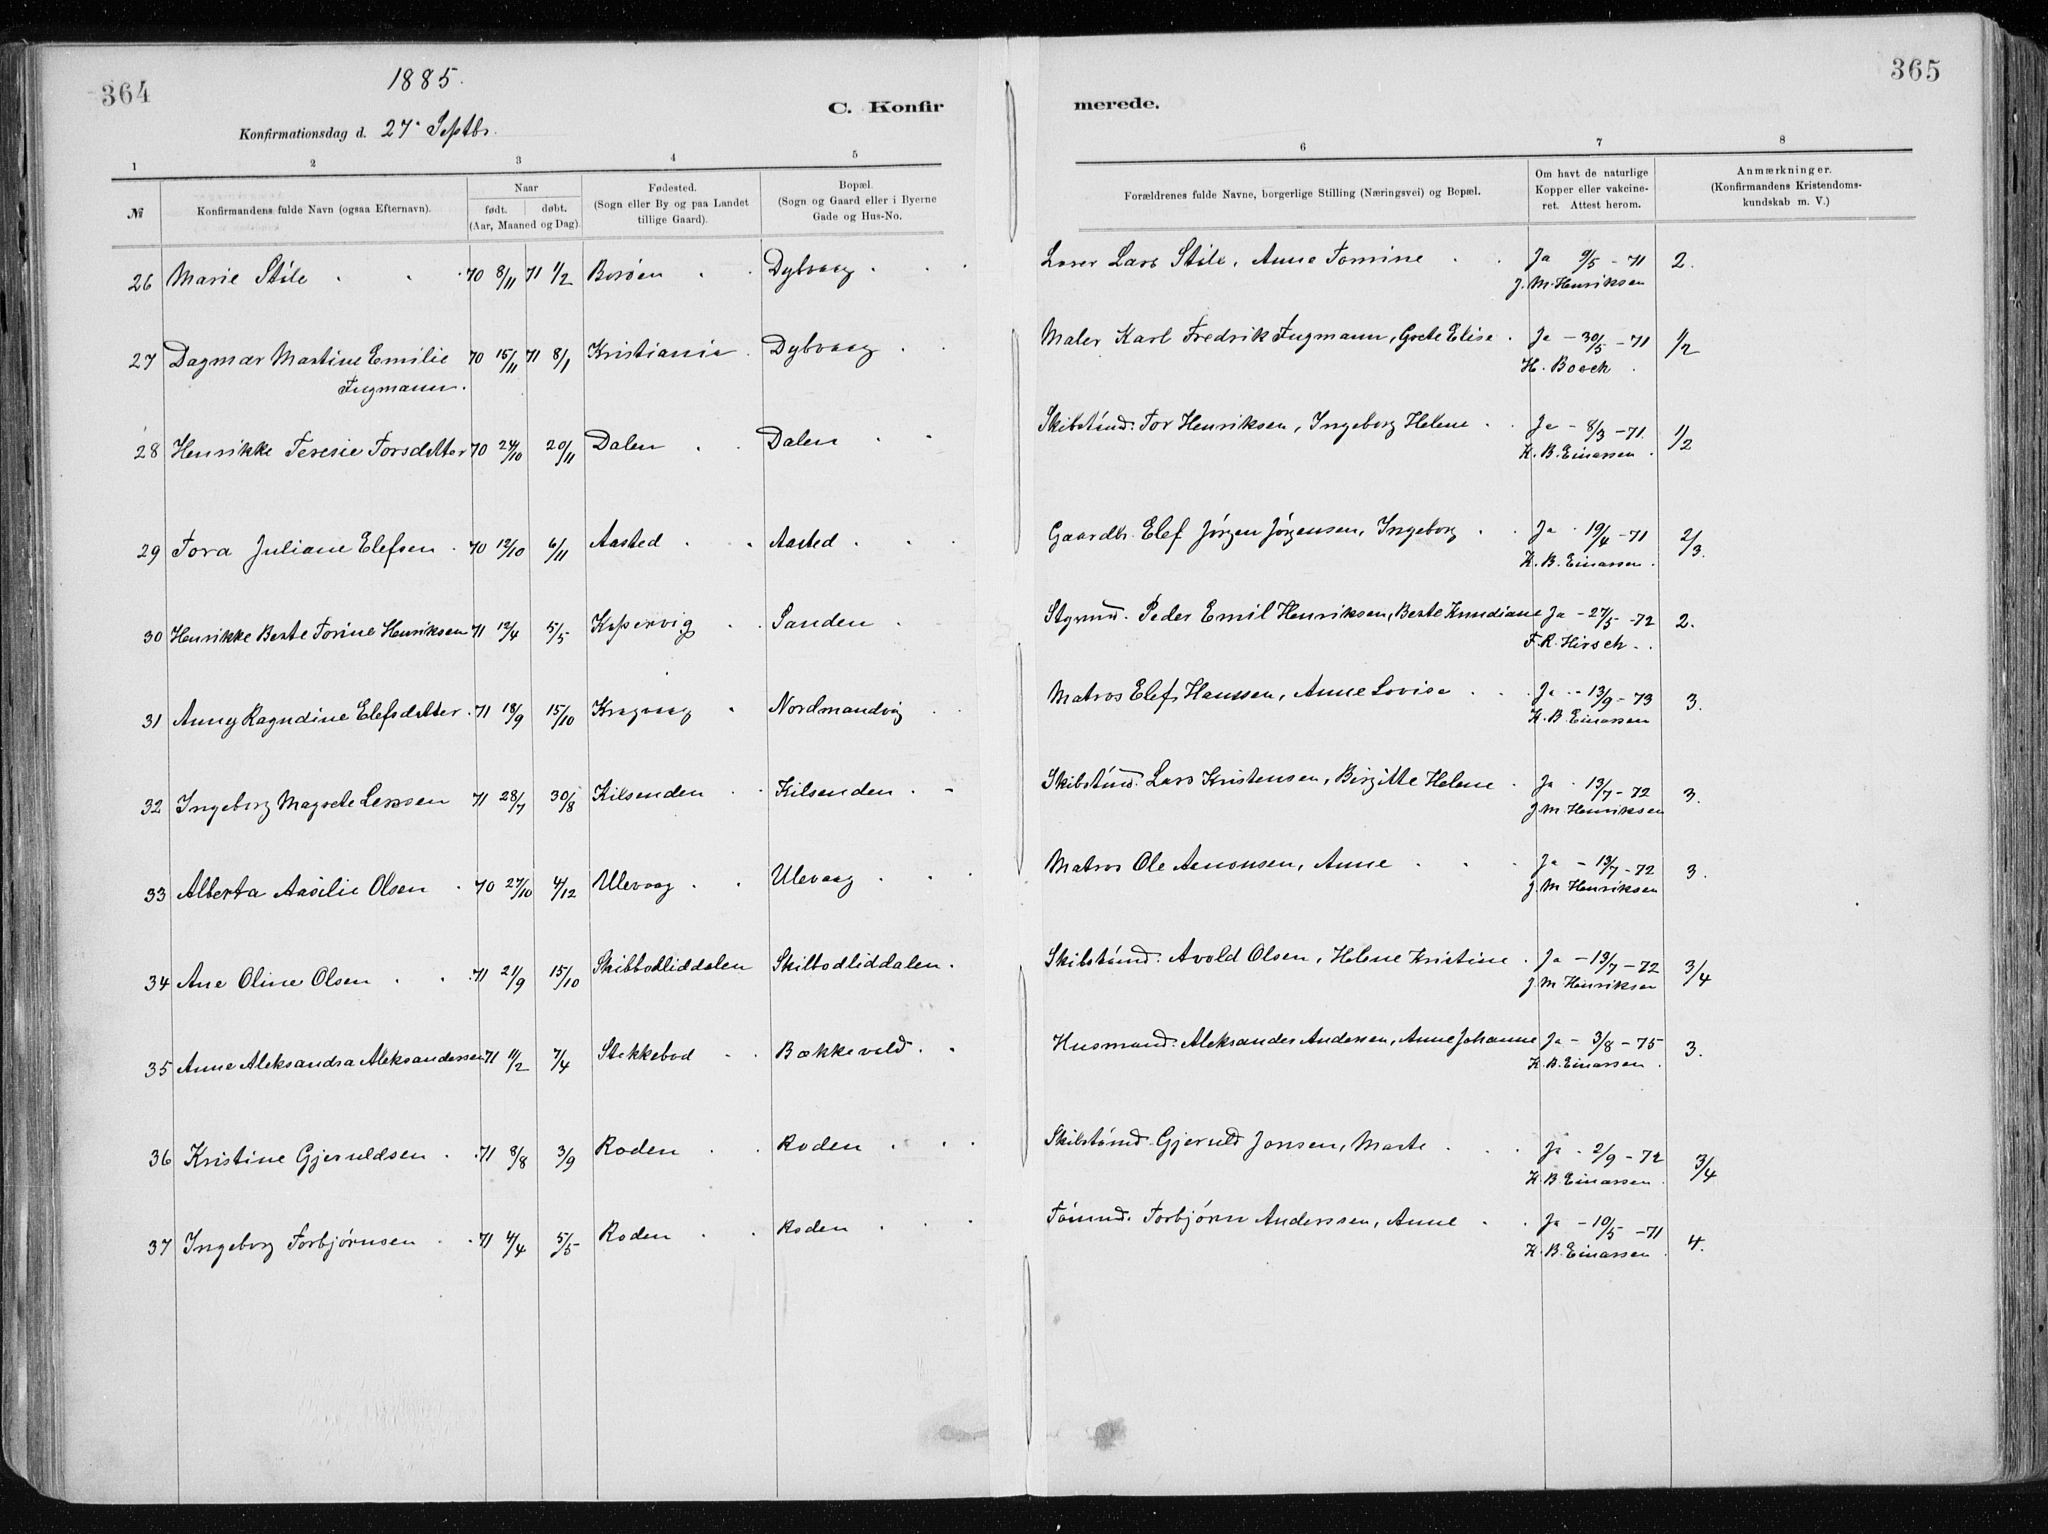 364
1885.
C. Konfir
Konfirmationsdag d. 27. Septbr.
1 2 3 4 5
№ Konfirmandens fulde Navn (ogsaa Efternavn). Naar født. døbt. (Aar, Maaned og Dag). Fødested. (Sogn eller By og paa Landet tillige Gaard). Bopæl. (Sogn og Gaard eller i Byerne Gade og Hus-No.
26 Marie Stile 70 8/11 71 1/2 Borøen Dybvaag
27 Dagmar Martine Emilie 70 15/11 71 8/1 Kristiania Dybvaag
Fugmann.
28 Henrikke Teresie Torsdatter 70 24/10 20/11 Dalen Dalen
29 Tora Juliane Elefsen 70 12/10 6/11 Aasted Aasted
30 Henrikke Berte Torine Henriksen 71 12/4 5/5 Kopervig Sanden
31 Anny Ragndine Elefsdatter 71 18/9 15/10 Kragvaag Nordmandvig
32 Ingeborg Magrete Larssen 71 28/7 30/8 Kilsenden Kilsenden
33 Alberta Aasilie Olsen 70 27/10 4/12 Ulevaag Ulevaag
34 Ane Oline Olsen 71 21/9 15/10 Skibbodliddalen Skibbodliddalen
35 Anne Aleksandra Aleksandersen 71 11/2 7/4 Stekkebod Bækkevold
36 Kristine Gjeruldsen 71 8/8 3/9 Roden Roden
37 Ingeborg Torbjørnsen 71 4/4 5/5 Roden Roden
365
merede.
6 7 8
Forældrenes fulde Navne, borgerlige Stilling (Næringsvei) og Bopæl. Om havt de naturlige Kopper eller vakcine- ret. Attest herom. Anmærkninger. (Konfirmandens Kristendoms- kundskab m. V.)
Lars Stile, Anne Tomine Ja 9/5 - 71 2.
J. M. Henriksen
Maler Karl Fredrik Fugmann, Grete Elise Ja - 30/5 - 71 1/2
H. Boeck
Skibstømd. Tor Henriksen, Ingeborg Helene Ja - 8/3 - 71. 1/2
K. B. Einarsen
Gaardbr. Elef Jørgen Jørgensen, Ingeborg Ja 19/4 - 71 2/3.
K. B. Einarsen
Styrmd. Peder Emil Henriksen, Berte Knudiane Ja - 27/5 - 72 2.
F. R. Hirsch
Matros Elef Hanssen, Anne Lovise Ja - 13/9 - 73 3.
K. B. Einarsen
Skibstømd. Lars Kristensen, Birgitte Helene Ja 13/7 - 72 3.
J. M. Henriksen
Matros Ole Aanonsen, Anne Ja - 13/7 - 72 3.
J. M Henriksen
Skibstømd. Avold Olsen, Helene Kristine Ja - 13/7 - 72 3/4
J M Henriksen
Husmand. Aleksander Andersen, Anne Johanne Ja - 3/8 - 75 3.
K. B. Einarsen
Skibstømd. Gjeruld Jonsen, Marte Ja - 2/9 - 72 3/4
K. B. Einarsen
Tømmd. Torbjørn Anderssen, Anne Ja - 10/5 - 71 4.
K. B. Einarsen